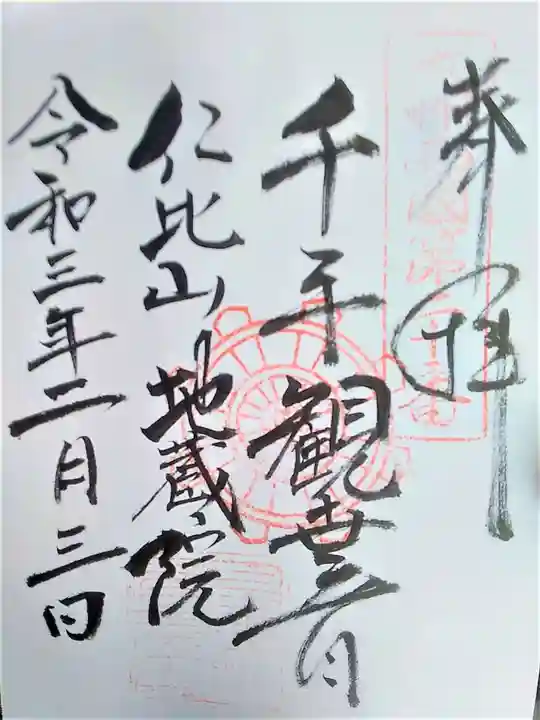 奉拝
千手観世音
仁比山地蔵院
令和三年二月三日